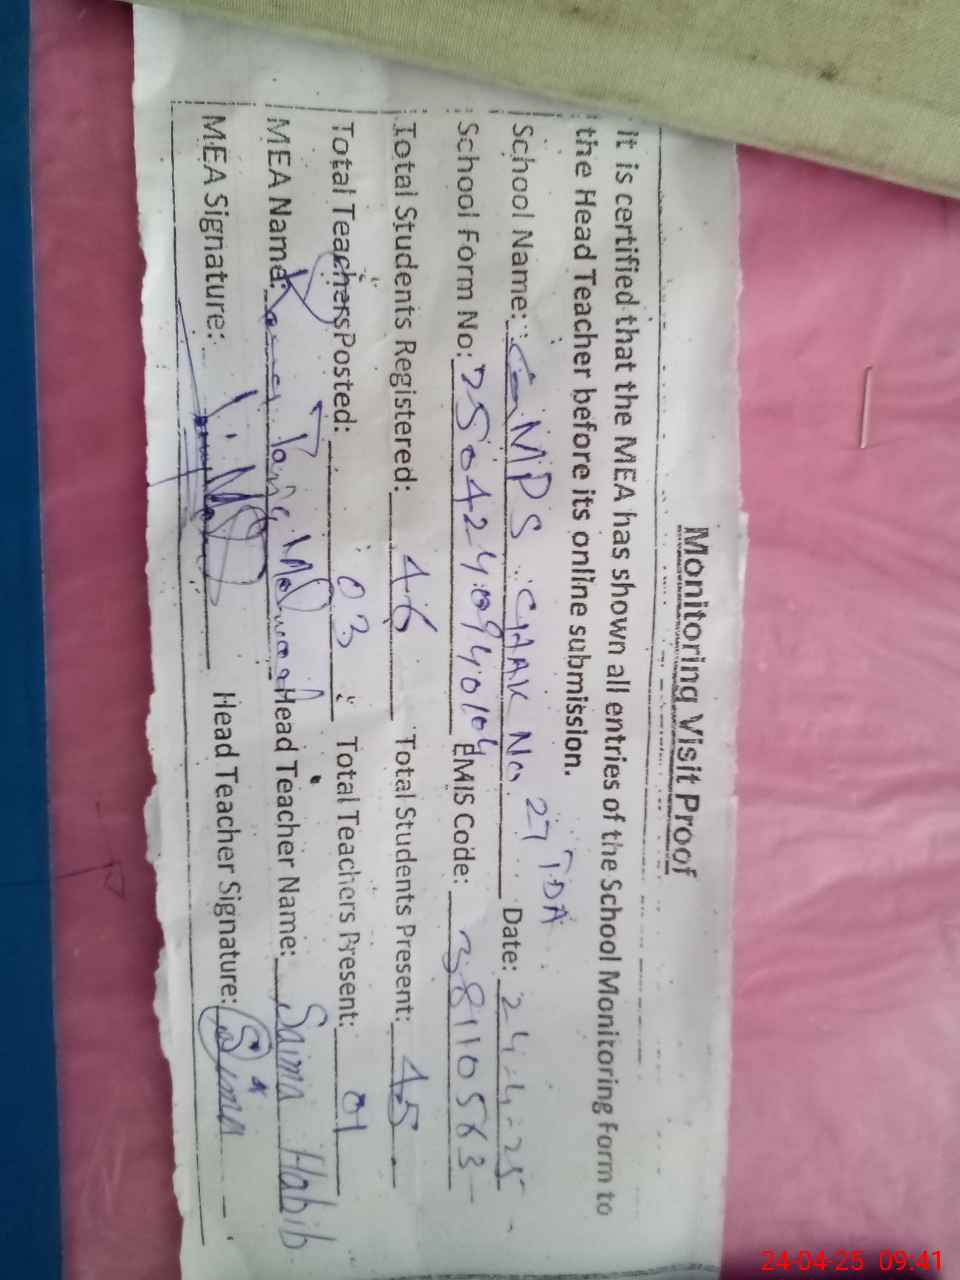 Monitoring Visit Proof
it is certified that the MEA has shown all entries of the School Monitoring Form to
the Head Teacher before its online submission.
School Name: GMPS CHAK No. 27 TDA Date: 24-4-25
School Form No: 2504240940104 EMIS Code: 38110563
Total Students Registered: 46 Total Students Present: 45
Total Teachers Posted: 03 Total Teachers Present: 01
MEA Name: Head Teacher Name: Saima Habib
MEA Signature: Head Teacher Signature: Saima
24-04-25 09:41